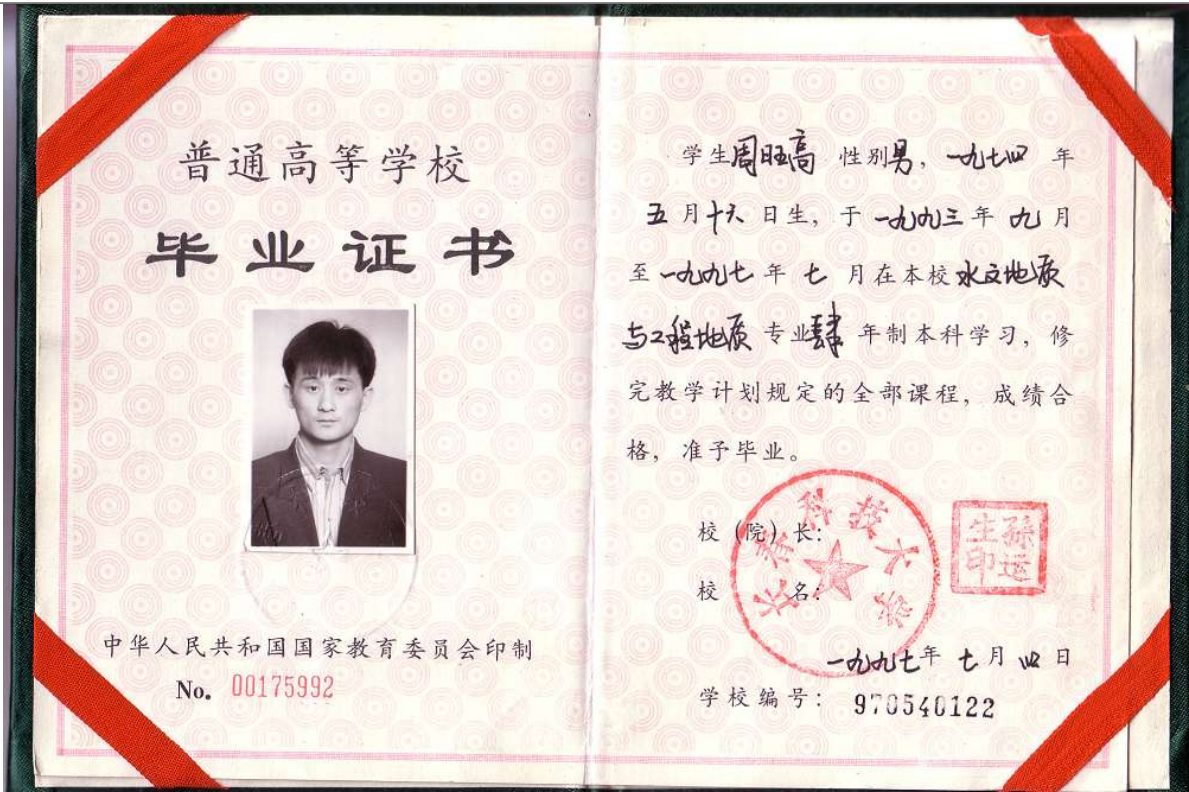 普通高等学校
毕业证书
中华人民共和国国家教育委员会印制
No. 00175992
学生周旺高 性别男，一九七四 年
五月十六日生，于一九九三年九月
至一九九七年七月在本校水文地质
与工程地质专业肆年制本科学习，修
完教学计划规定的全部课程，成绩合
格，准予毕业。
校（院）长：
孙运生印
校 名：
长春科技大学
一九九七年七月四日
学校编号： 970540122